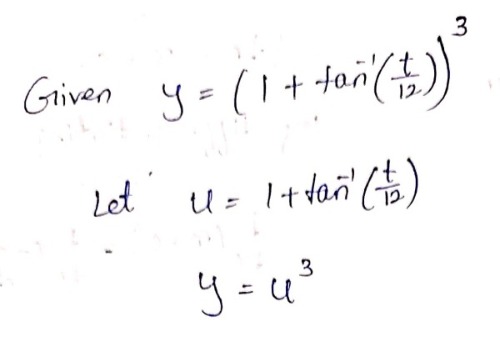 Given y = (1 + tan⁻¹(t/12))³
Let u = 1 + tan⁻¹(t/12)
y = u³